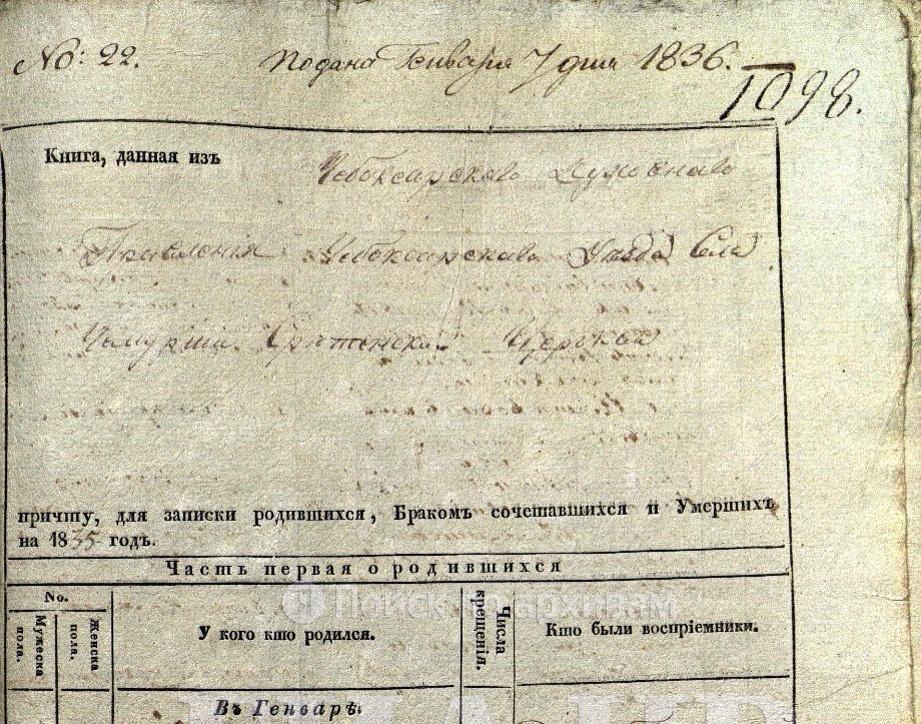 No: 22. подана Генваря 7 дня 1836.
1098.
Книга, данная изъ Чебоксарскаго Духовнаго
Правленія Чебоксарскаго Уезда Села
Чемурши Срѣтенской Церькви
причту, для записки родившихся, Бракомъ сочетавшихся и Умершихъ
на 1835 годъ.
Часть первая о родившихся
No.
Мужеска пола.
Женска пола.
У кого кто родился.
Числа крещенія.
Кто были воспріемники.
Въ Генварѣ.
Поиск по архивам